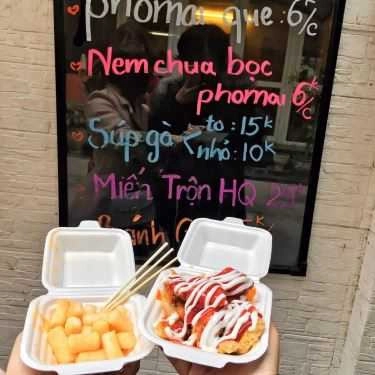 phomai que : 6k/c
Nem chua bọc
phomai 6k/c
Súp gà < to : 15k
nhỏ : 10k
Miến Trộn HQ
Bánh